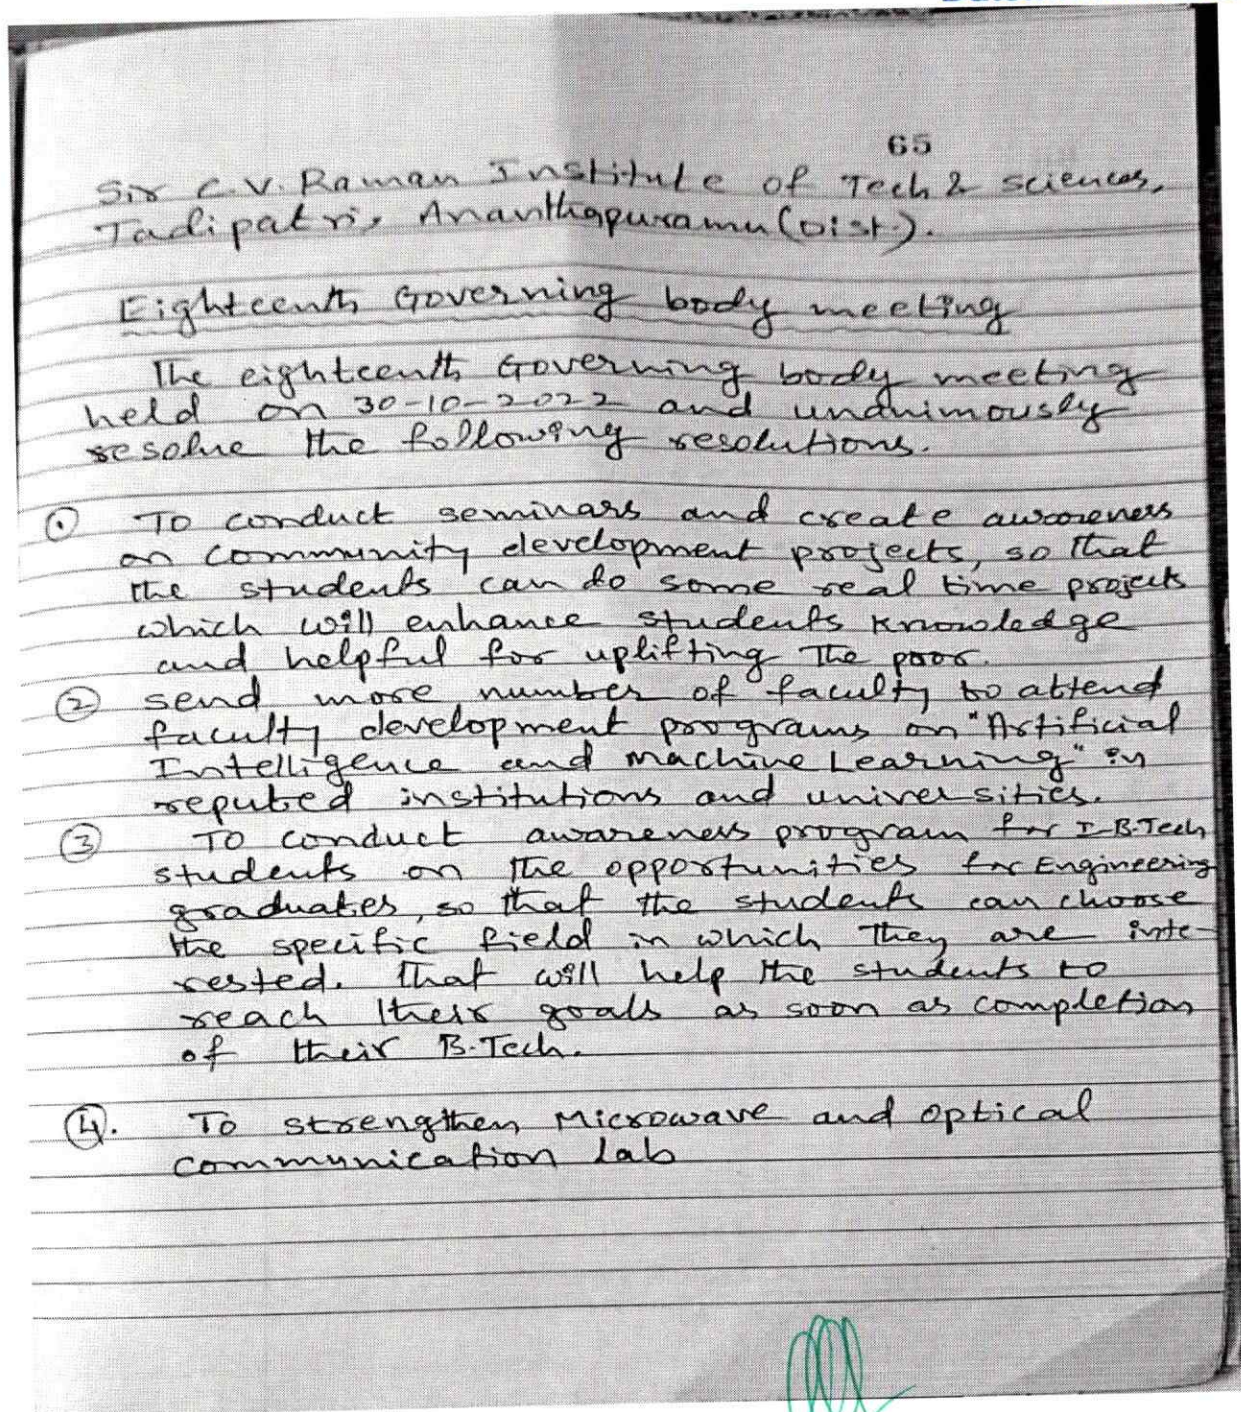 65
Sir C.V. Raman Institute of Tech & sciences,
Tadipatri, Ananthapuramu (Dist.).
Eighteenth Governing body meeting
The eighteenth Governing body meeting
held on 30-10-2022 and unanimously
resolve the following resolutions.
① To conduct seminars and create awareness
on community development projects, so that
the students can do some real time projects
which will enhance students knowledge
and helpful for uplifting the poor.
② send more number of faculty to attend
faculty development programs on "Artificial
Intelligence and Machine Learning" in
reputed institutions and universities.
③ To conduct awareness program for I-B.Tech
students on the opportunities for Engineering
graduates, so that the students can choose
the specific field in which they are inte-
rested. that will help the students to
reach their goals as soon as completion
of their B.Tech.
④. To strengthen Microwave and optical
communication Lab